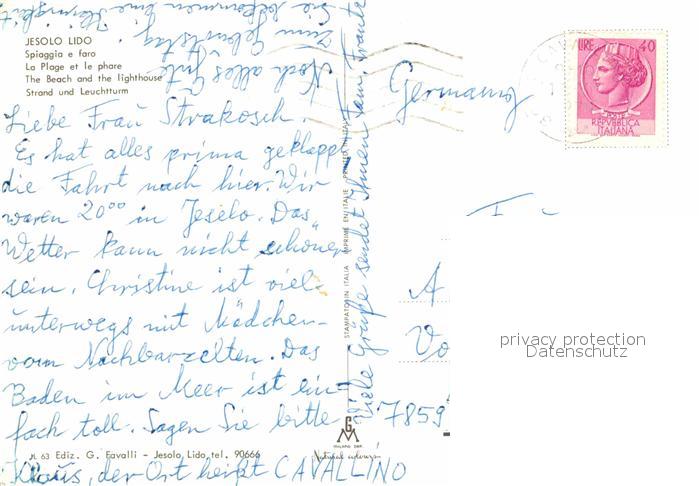 JESOLO LIDO
Spiaggia e faro
La Plage et le phare
The Beach and the lighthouse
Strand und Leuchtturm
Liebe Frau Strakosch.
Es hat alles prima geklappt
die Fahrt nach hier. Wir
waren 20⁰⁰ in Jeselo. Das
Wetter kann nicht schöner
sein. Christine ist viel
unterwegs mit Mädchen
vom Nachbarzelten. Das
Baden im Meer ist ein-
fach toll. Sagen Sie bitte
Klaus, der Ort heißt CAVALLINO
63 Ediz. G. Favalli - Jesolo Lido, tel. 90666
Noch alles Gute
zum Geburtstag
Sie bekommen eine
Viele Grüße sendet Ihnen Fam.
STAMPATO IN ITALIA IMPRIMÉ EN ITALIE PRINTED IN ITALY
MILANO
Natural colours
Germany
LIRE 40
POSTE
REPVBBLICA
ITALIANA
A
Vo
7859
privacy protection
Datenschutz